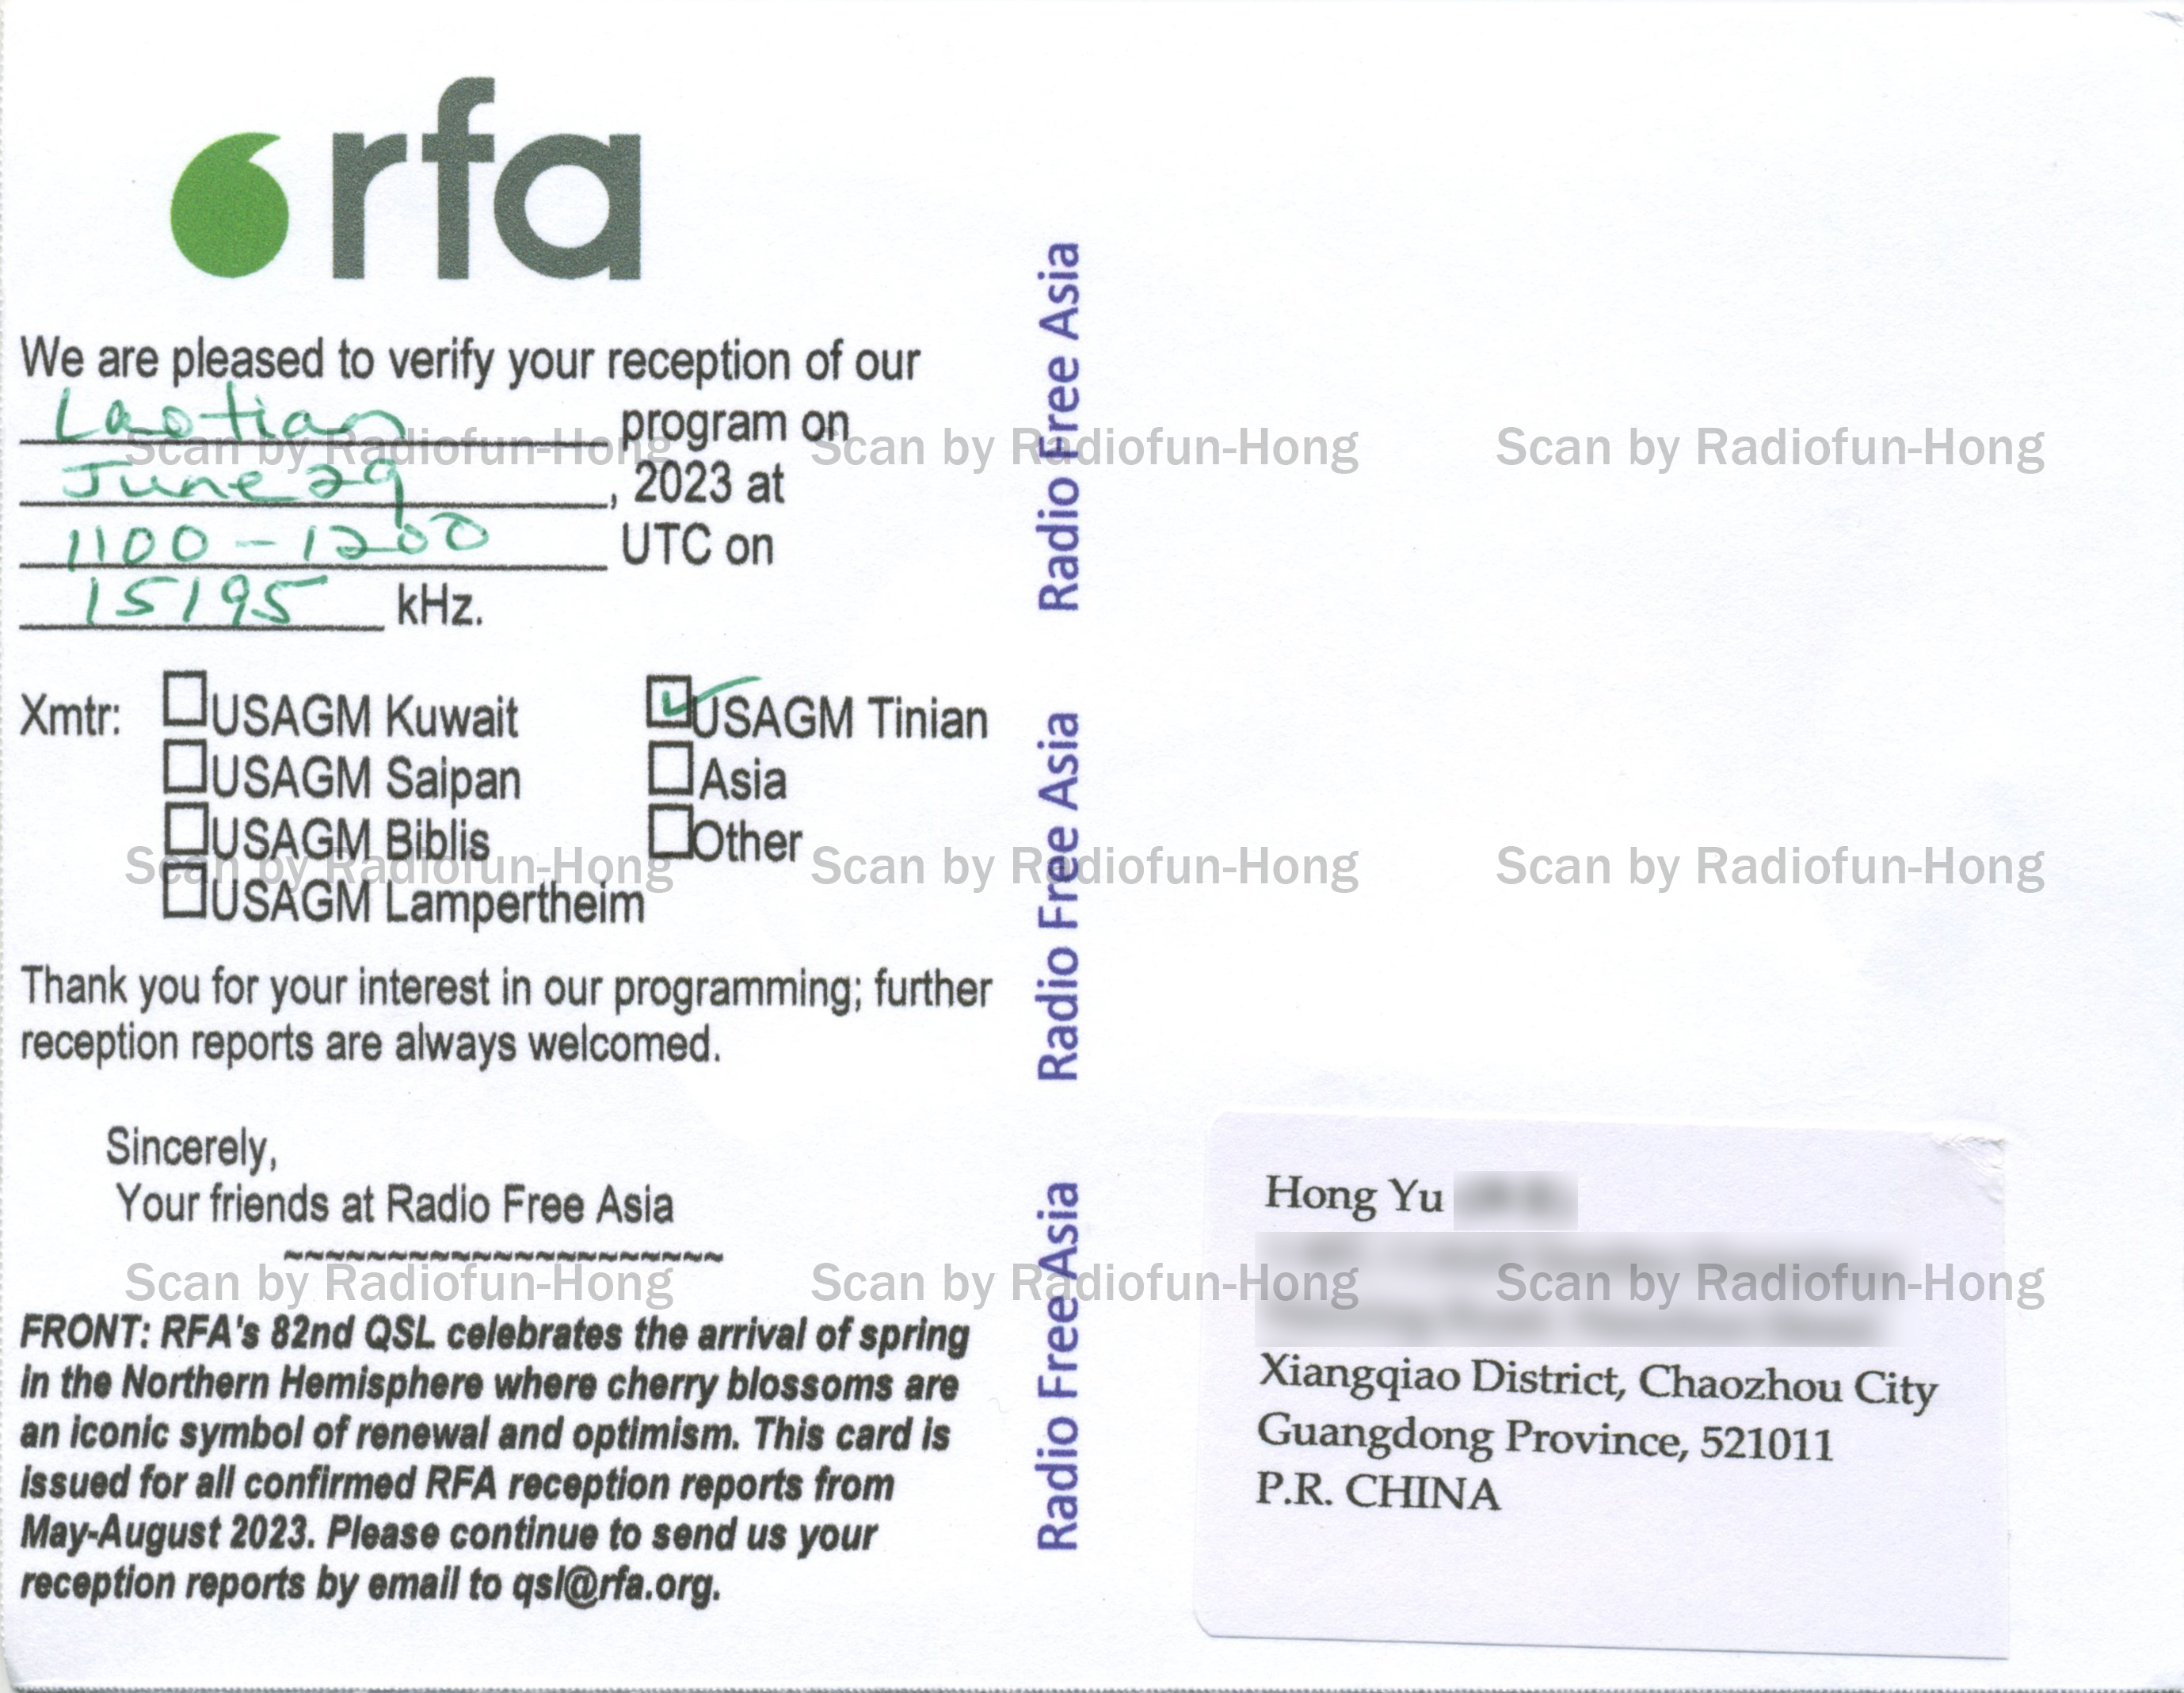 rfa
We are pleased to verify your reception of our
Laotian program on
June 29, 2023 at
1100-1200 UTC on
15195 kHz.
Xmtr: USAGM Kuwait USAGM Tinian
USAGM Saipan Asia
USAGM Biblis Other
USAGM Lampertheim
Thank you for your interest in our programming; further
reception reports are always welcomed.
Sincerely,
Your friends at Radio Free Asia
~~~~~~~~~~~~~~~~~~~~~~
FRONT: RFA's 82nd QSL celebrates the arrival of spring
in the Northern Hemisphere where cherry blossoms are
an iconic symbol of renewal and optimism. This card is
issued for all confirmed RFA reception reports from
May-August 2023. Please continue to send us your
reception reports by email to qsl@rfa.org.
Radio Free Asia Radio Free Asia Radio Free Asia
Hong Yu
Xiangqiao District, Chaozhou City
Guangdong Province, 521011
P.R. CHINA
Scan by Radiofun-Hong Scan by Radiofun-Hong Scan by Radiofun-Hong
Scan by Radiofun-Hong Scan by Radiofun-Hong Scan by Radiofun-Hong
Scan by Radiofun-Hong Scan by Radiofun-Hong Scan by Radiofun-Hong